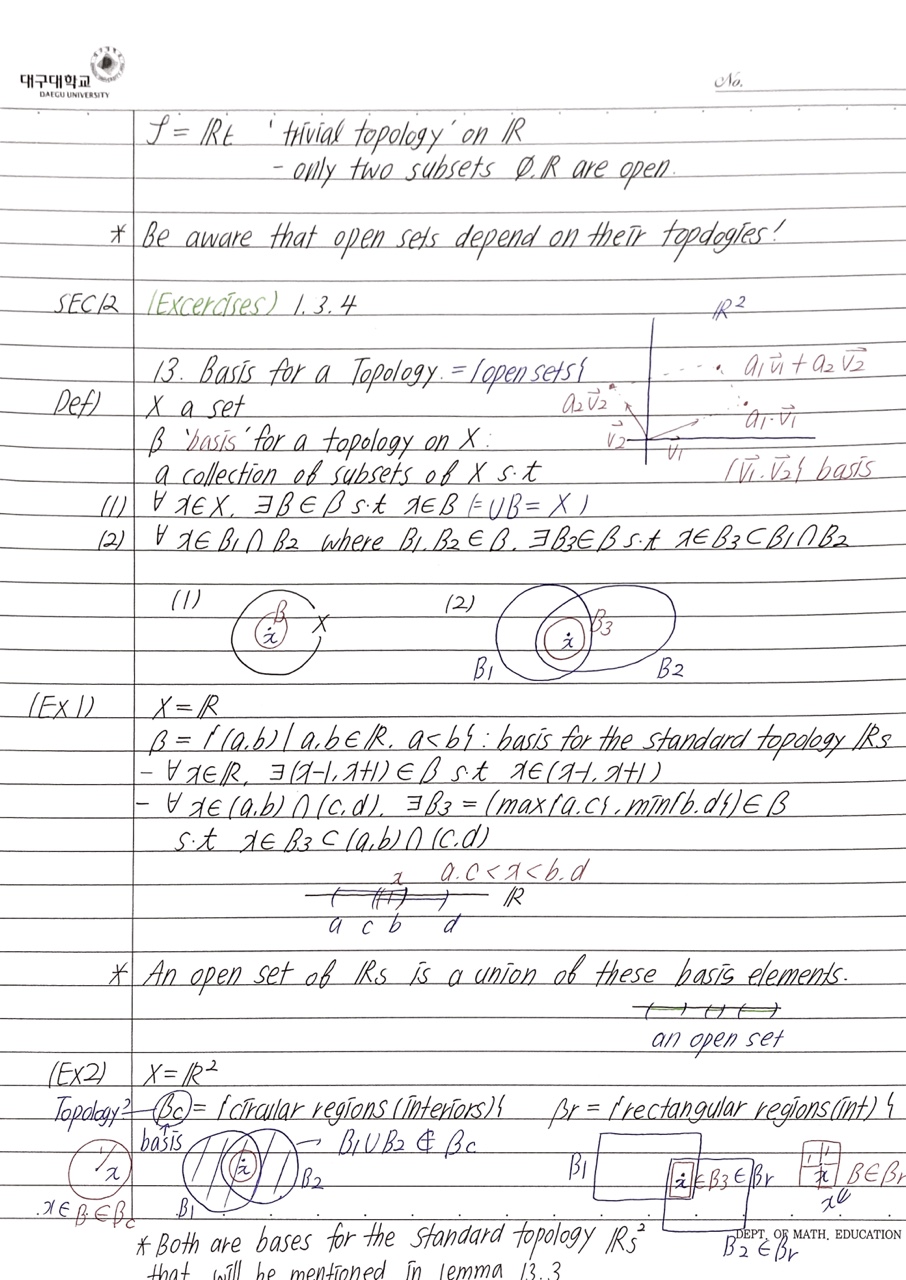 대구대학교
DAEGU UNIVERSITY
No.
𝒯 = ℝt 'trivial topology' on ℝ
- only two subsets ∅. ℝ are open.
* Be aware that open sets depend on their topologies!
SEC12 (Excercises) 1.3.4
ℝ²
13. Basis for a Topology. = {open sets}
a₁v⃗₁ + a₂v⃗₂
Def) X a set
a₂v⃗₂
a₁·v⃗₁
β 'basis' for a topology on X :
v⃗₂
v⃗₁
a collection of subsets of X s.t
{v⃗₁. v⃗₂} basis
(1) ∀ x∈X, ∃B∈β s.t x∈B (= ∪B = X)
(2) ∀ x∈B₁∩B₂ where B₁.B₂∈β. ∃B₃∈β s.t x∈B₃⊂B₁∩B₂
(1) β x X
(2) x B₃ B₁ B₂
(Ex1) X = ℝ
β = {(a,b) | a,b∈ℝ. a<b} : basis for the standard topology ℝs
- ∀ x∈ℝ, ∃(x-1, x+1) ∈ β s.t x∈(x-1, x+1)
- ∀ x∈(a,b)∩(c,d), ∃B₃ = (max{a.c}, min{b.d}) ∈ β
s.t x∈B₃⊂(a,b)∩(c,d)
x a.c < x < b.d
ℝ
a c b d
* An open set of ℝs is a union of these basis elements.
an open set
(Ex2) X = ℝ²
Topology? βc = {circular regions (interiors)} βr = {rectangular regions (int)}
basis
B₁∪B₂ ∉ βc
x
x
B₂
B₁
x ∈ B₃ ∈ βr
x B∈βr
x
x∈B∈βc
B₁
B₂∈βr
DEPT. OF MATH. EDUCATION
* Both are bases for the standard topology ℝs²
that will be mentioned in lemma 13.3